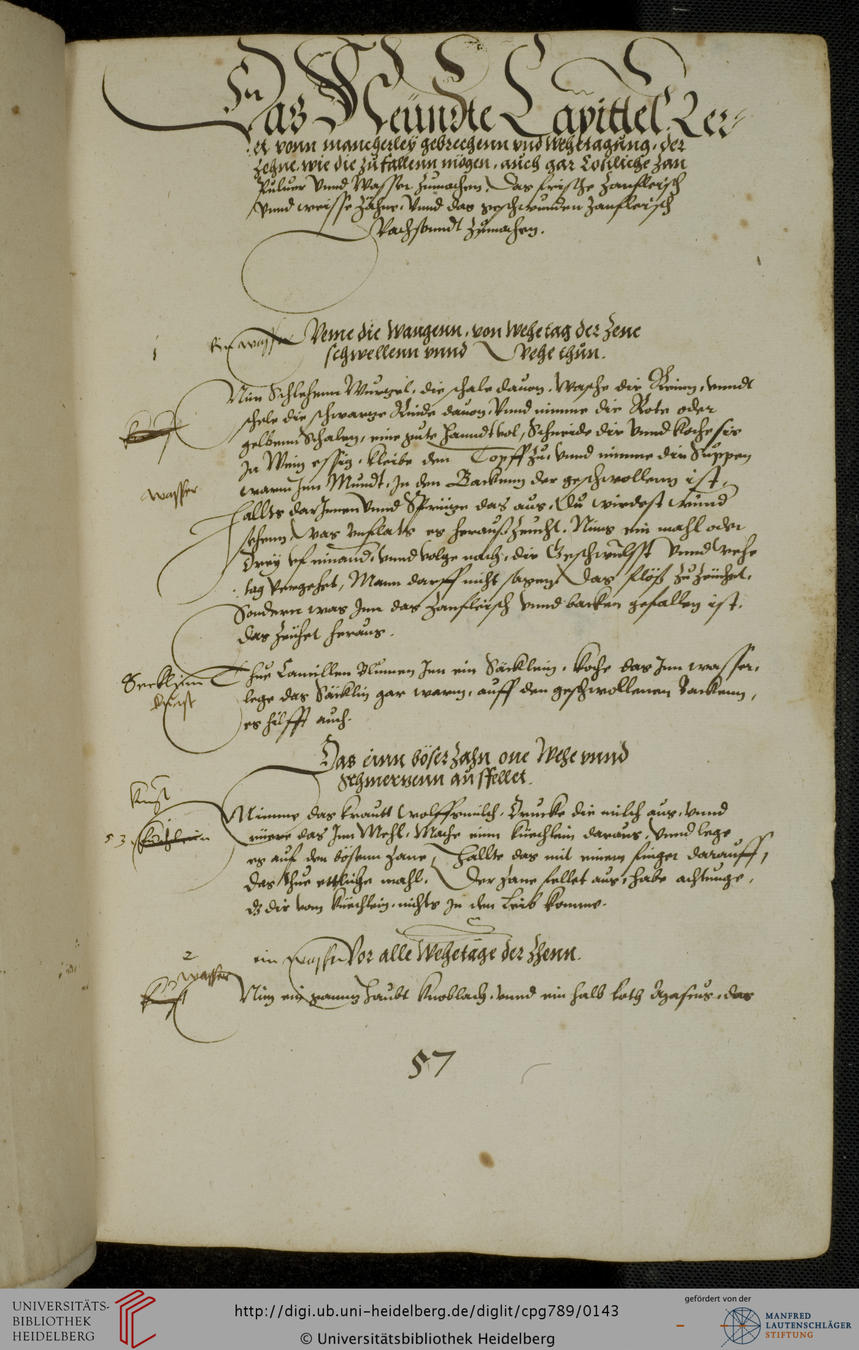 Das Neundte Capittel Ler-
et vonn mancherley gebrechenn vnd Wehetagung, der
Zehne, wie die zufallenn mögen, auch gar Cöstliche Zan
Puluer Vnnd Wasser zumachen, Das frische Zanfleisch
Vnnd weisse Zähne, Vnnd das geschwunden Zanfleisch
Wachsenndt zumachen.
1
ein wasser
Weme die Wangenn, von Wehetag der Zene
schwellenn vnnd Wehe thun.
Nim Schlehenn Wurzel, die schale dauon, Wasche die Rein, vnndt
schele die schwarze Rinde dauon, Vnnd nimme die Rote oder
gelbenn Schalen, eine gute Hanndt vol, Schneide die Vnnd koche sie
In Wein essig, kleibe den Topff zu, vnnd nimme die Suppen
wasser
warm Inn Mundt, In den Backenn der geschwollenn ist,
Hallts darInnen Vnnd Sprüze das aus, Du wirdest
sehenn, Was Vnflats es herauß zeucht, Nims ein mahl oder
Drey vf einand, vnnd volge nach, die Geschwulst Vnnd wehe
tag Vergehet, Mann darff nicht sagen, Das flöß zu zeuhet,
Sondern was Inn das Zanfleisch Vnnd backen gefallen ist,
das zeuhet heraus.
Secklein
Thue Camillen Blumen Inn ein Säcklein, koche das Inn wasser,
kunst
lege das Säcklin gar warm, auff den geschwollenen Backenn,
es hilfft auch.
Das einn böser Zahn, one Wehe vnnd
Schmerzenn ausfellet.
kunst
Nimme das krautt Wolffsmilch, Drucke die milch aus, vnnd
53
küchlein
rüere das Inn Mehl, Mache einn küechlein daraus, Vnnd lege
es auf den bösenn Zane, Hallte das mit einem finger darauff,
Das thue ettliche mahl, Der Zane fellet aus, habe achtunge,
dz dir vom küechlein, nichts In den Leib komme.
2
ein wasser Vor alle Wehetäge der Zhenn.
wasser
Nim ein ganng Haubt knoblach, vnnd ein halb loth Safran, das
57
UNIVERSITÄTS-
BIBLIOTHEK
HEIDELBERG
http://digi.ub.uni-heidelberg.de/diglit/cpg789/0143
© Universitätsbibliothek Heidelberg
gefördert von der
MANFRED
LAUTENSCHLÄGER
STIFTUNG